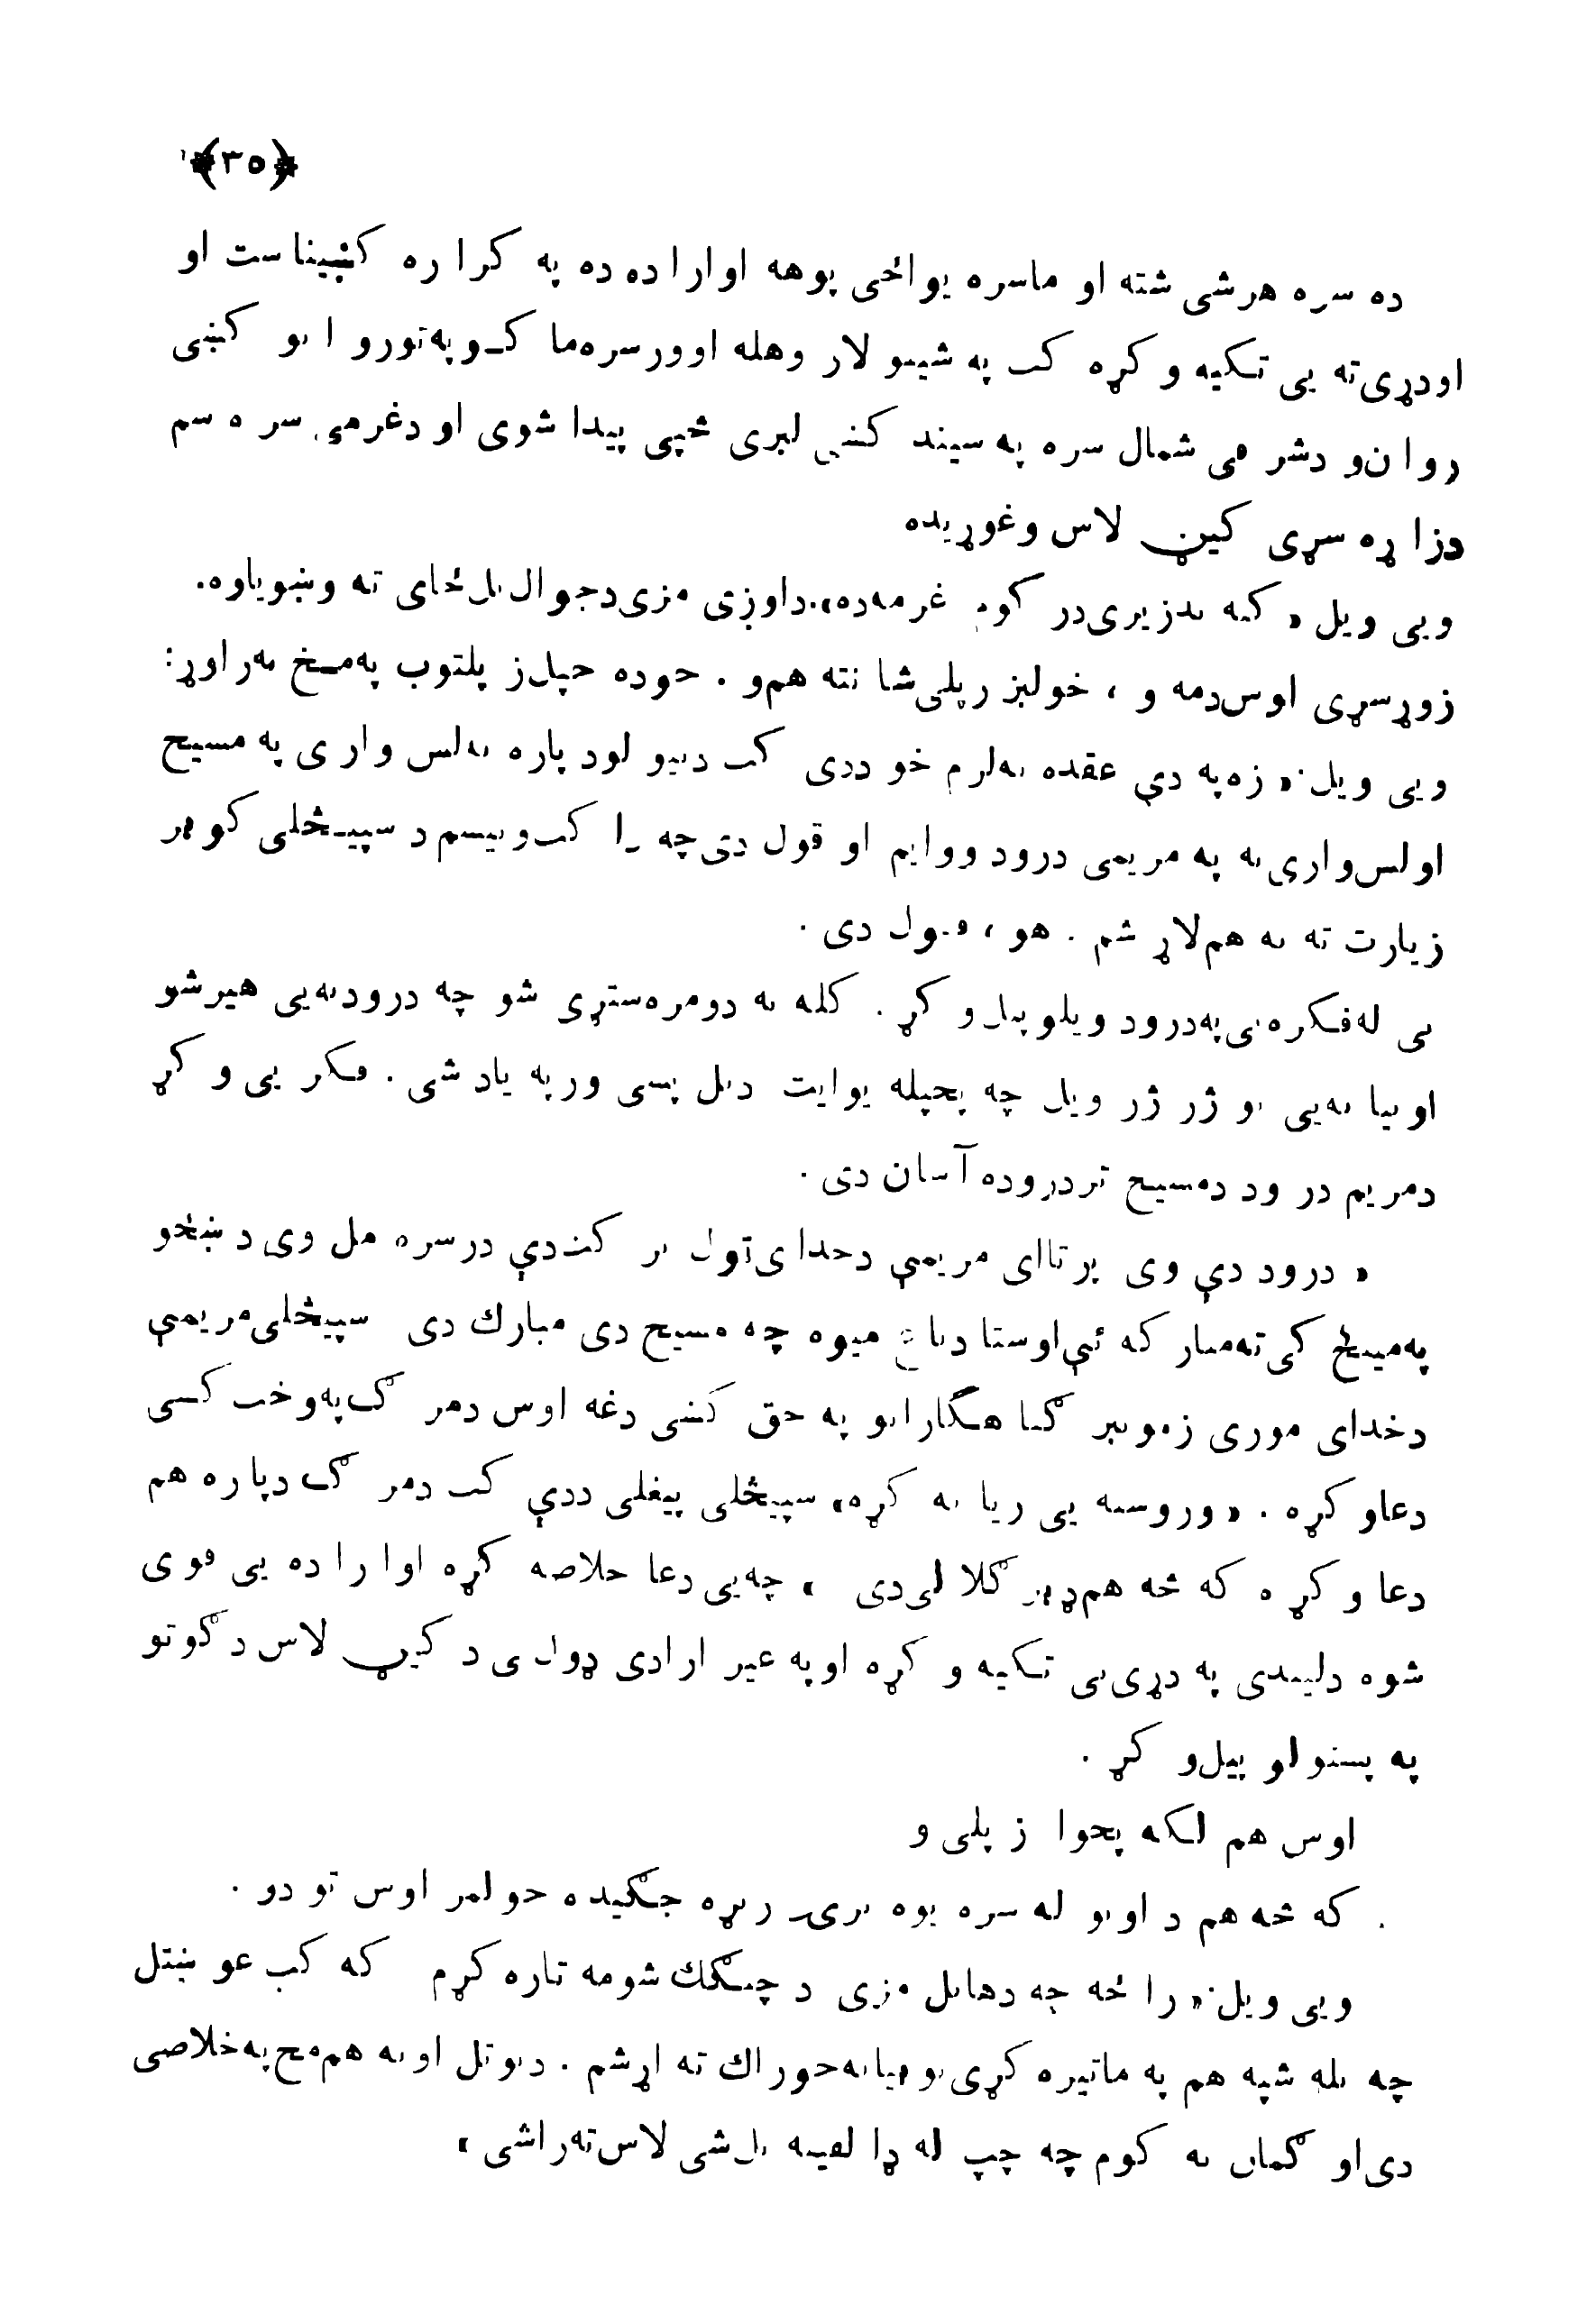 ﴿٣٥﴾
ده سره هرشی شته او ماسره یواځی پوهه اواراده ده په کراره کښیناست او
اودړی ته یی تکیه و کړه کب په شیبو لار وهله اوورسره ما کو په تورو ابو کښی
روان و دشرمی شمال سره په سیند کښی لبری څپی پیدا شوی او دغرمی سره سم
دزاړه سړی کیڼ لاس وغوړیده
ویی ویل «کبه بدزیری درکوم غرمه ده».داوږی مزی دجوال بل ځای ته وښویاوه.
زوړسړی اوس دمه و ، خولبز رپلی شانته هم و . خوده خپل زپلتوب په مخ نه راوړ:
ویی ویل: «زه په دې عقده نه لرم خو ددی کب دنیولود پاره به لس واری په مسیح
اولس واری به په مریمی درود ووایم او قول دی چه را کب ونیسم د سپیڅلی کوبر
زیارت ته به هم لاړ شم . هو ، قول دی .
بی له فکره ئی په درود ویلو پیل و کړ . کله به دومره ستړی شو چه درود به یی هیرشو
او بیا به یی نو ژر ژر ویل چه پخپله یوایت دبل پسی ورپه یاد شی . فکر یی و کړ
دمریم درود دمسیح تر دروده آسان دی .
«درود دې وی پر تاای مریمې دخدای تول بر کت دې درسره مل وی د ښځو
په مینځ کی ته مبار که ئې اوستا دباغ میوه چه مسیح دی مبارك دی سپیڅلی مریمې
دخدای موری زموږبر گنا هگارانو په حق کښی دغه اوس دمر گ په وخت کسی
دعاو کړه . «وروسته یی ریا نه کړه» سپیڅلی پیغلی ددې کب دمر گ دپاره هم
دعا و کړه که څه هم ډیر گلالی دی » چه یی دعا خلاصه کړه اواراده یی قوی
شوه دلیندی په دړی یی تکیه و کړه اوپه غیر ارادی ډول ی د کیڼ لاس د گوتو
په پستولو پیل و کړ .
اوس هم لکه پخوا زپلی و
. که څه هم د اوبو له سره یوه نری رپړه جگیده خولمر اوس تود و .
ویی ویل: «راځه چه دهابل مزی د چنگك شومه تاره کړم که کب عو ښتل
چه بله شپه هم په ماتیره کړی نو بیابه خوراك ته اړشم . دبوتل اوبه هم مخ په خلاصی
دی او گمان نه کوم چه چپ له ډالفینه بل شی لاس ته راشی »